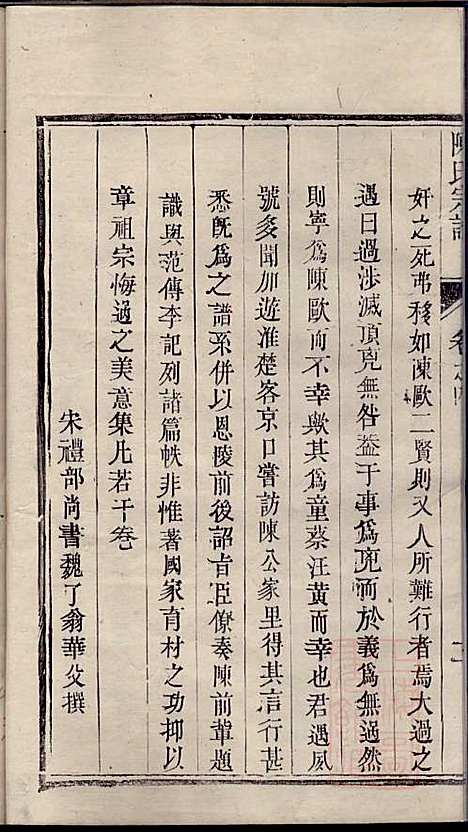 陳氏宗譜
卷之四
奸之死弗移如陳歐二賢則又人所難行者焉大過之
遇曰過涉滅頂兇無咎蓋于事爲兇而於義爲無過然
則寧爲陳歐而不幸歟其爲童蔡汪黃而幸也君遇夙
號多聞加遊淮楚客京口嘗訪陳公家里得其言行甚
悉旣爲之譜系併以恩陵前後詔肯臣僚奏陳前軰題
識與范傳李記列諸篇帙非惟著國家育材之功抑以
章祖宗悔過之美意集凡若干卷
宋禮部尚書魏了翁華父撰